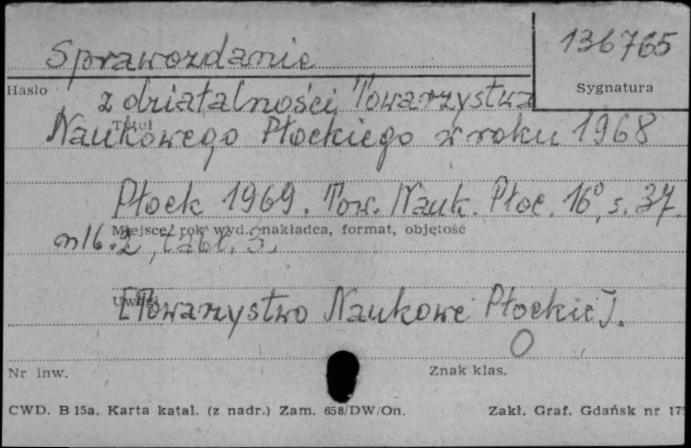 136765
Sprawozdanie
Hasło
Sygnatura
z działalności Towarzystwa
Tytuł
Naukowego Płockiego w roku 1968
Płock 1969. Tow. Nauk. Płoc. 16°, s. 37.
Miejsce, rok wyd., nakładca, format, objętość
nlb. 2, tabl. 3.
Uwagi
[Towarzystwo Naukowe Płockie].
O
Nr inw.
Znak klas.
CWD. B 15a. Karta katal. (z nadr.) Zam. 658/DW/On.
Zakł. Graf. Gdańsk nr 175